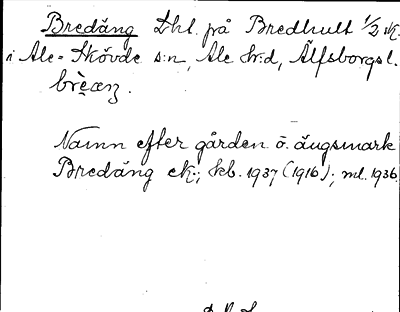 Bredäng Lht. på Bredhult 1/2 mtl.
i Ale-Skövde s:n, Ale h:d, Älfsborgs l.
brè̀æŋ.
Namn efter gården o. ängsmark
Bredäng ek.; kb. 1937 (1916); ml. 1936